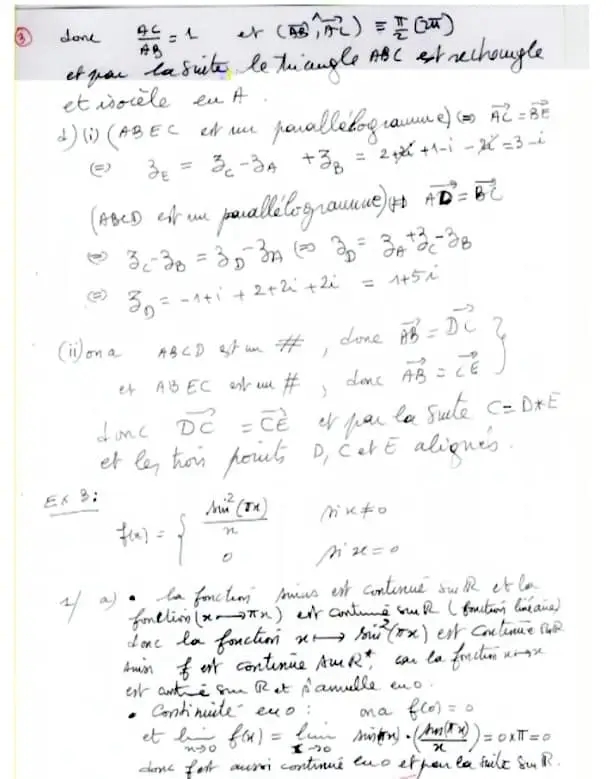 ③ donc AC/AB = 1 et (AB→, AC→) ≡ π/2 [2π]
et par la suite, le triangle ABC est rectangle
et isocèle en A.
d) (i) (ABEC est un parallélogramme) ⇔ AC→ = BE→
⇔ z_E = z_C - z_A + z_B = 2+2i+1-i-2i = 3-i
(ABCD est un parallélogramme) ⇔ AD→ = BC→
⇔ z_C - z_B = z_D - z_A ⇔ z_D = z_A + z_C - z_B
⇔ z_D = -1+i + 2+2i + 2i = 1+5i
(ii) on a ABCD est un #, donc AB→ = DC→ }
et ABEC est un #, donc AB→ = CE→
donc DC→ = CE→ et par la suite C = D*E
et les trois points D, C et E alignés.
Ex 3:
f(x) = { sin²(πx)/x si x≠0
0 si x=0
1/ a) • la fonction sinus est continue sur ℝ et la
fonction (x ↦ πx) est continue sur ℝ (fonction linéaire)
donc la fonction x ↦ sin²(πx) est continue sur ℝ
ainsi f est continue sur ℝ*, car la fonction x ↦ x
est continue sur ℝ et s'annulle en 0.
• Continuité en 0 : on a f(0) = 0
et lim x→0 f(x) = lim x→0 sin(πx) · (sin(πx)/x) = 0×π = 0
donc f est aussi continue en 0 et par la suite sur ℝ.